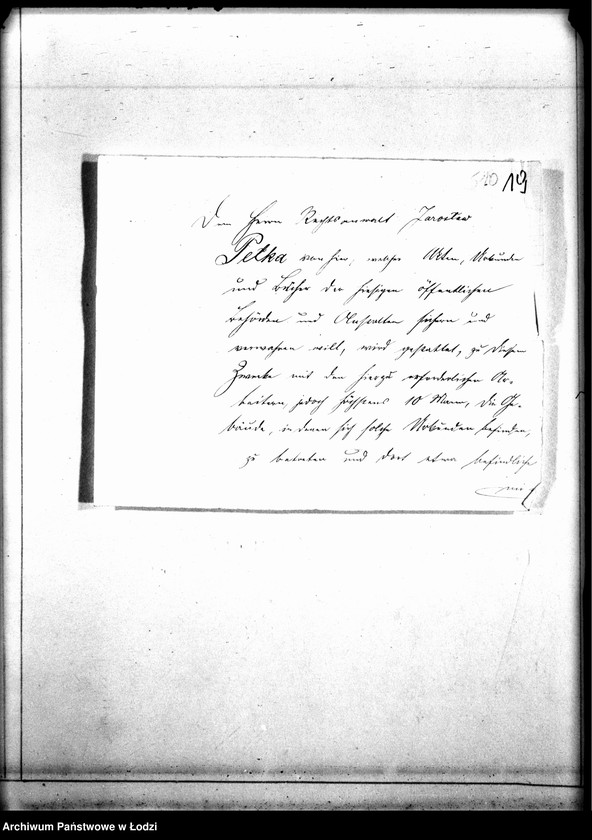 540 19
Dem Herrn Rechtsanwalt Jaroslaw
Petka von hier, welcher Akten, Urkunden
und Bücher der hiesigen öffentlichen
Behörden und Anstalten sichern und
verwahren will, wird gestattet, zu diesem
Zwecke mit den hierzu erforderlichen Ar-
beitern, jedoch höchstens 10 Mann, die Ge-
bäude, in denen sich solche Urkunden befinden,
zu betreten und dort etwa befindliche
Archiwum Państwowe w Łodzi